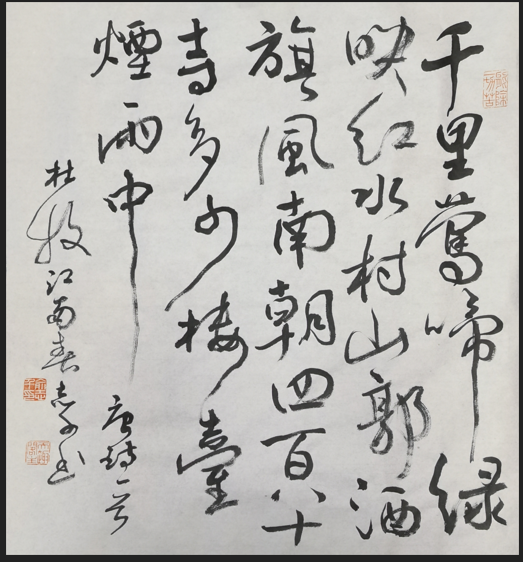 千里鶯啼緑
映红水村山郭酒
旗風南朝四百八十
寺多少楼臺
煙雨中 唐詩一首
杜牧江南春